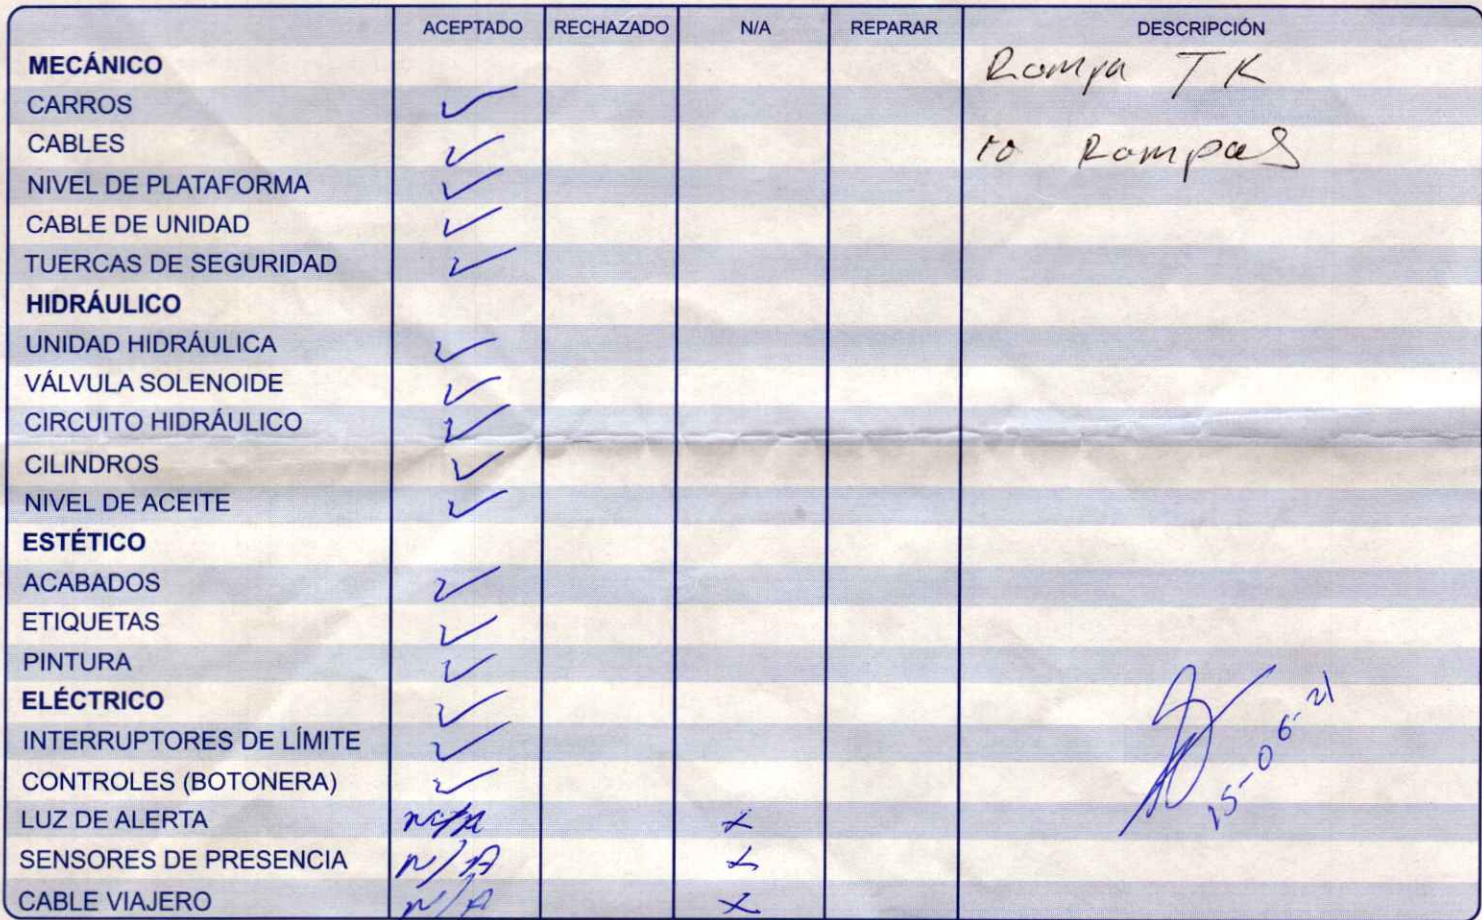 ACEPTADO RECHAZADO N/A REPARAR DESCRIPCIÓN
MECÁNICO Rampa TK
CARROS ✓
CABLES ✓ 10 Rampas
NIVEL DE PLATAFORMA ✓
CABLE DE UNIDAD ✓
TUERCAS DE SEGURIDAD ✓
HIDRÁULICO
UNIDAD HIDRÁULICA ✓
VÁLVULA SOLENOIDE ✓
CIRCUITO HIDRÁULICO ✓
CILINDROS ✓
NIVEL DE ACEITE ✓
ESTÉTICO
ACABADOS ✓
ETIQUETAS ✓
PINTURA ✓
ELÉCTRICO ✓
INTERRUPTORES DE LÍMITE ✓
CONTROLES (BOTONERA) ✓
15-06-21
LUZ DE ALERTA N/A x
SENSORES DE PRESENCIA N/A x
CABLE VIAJERO N/A x